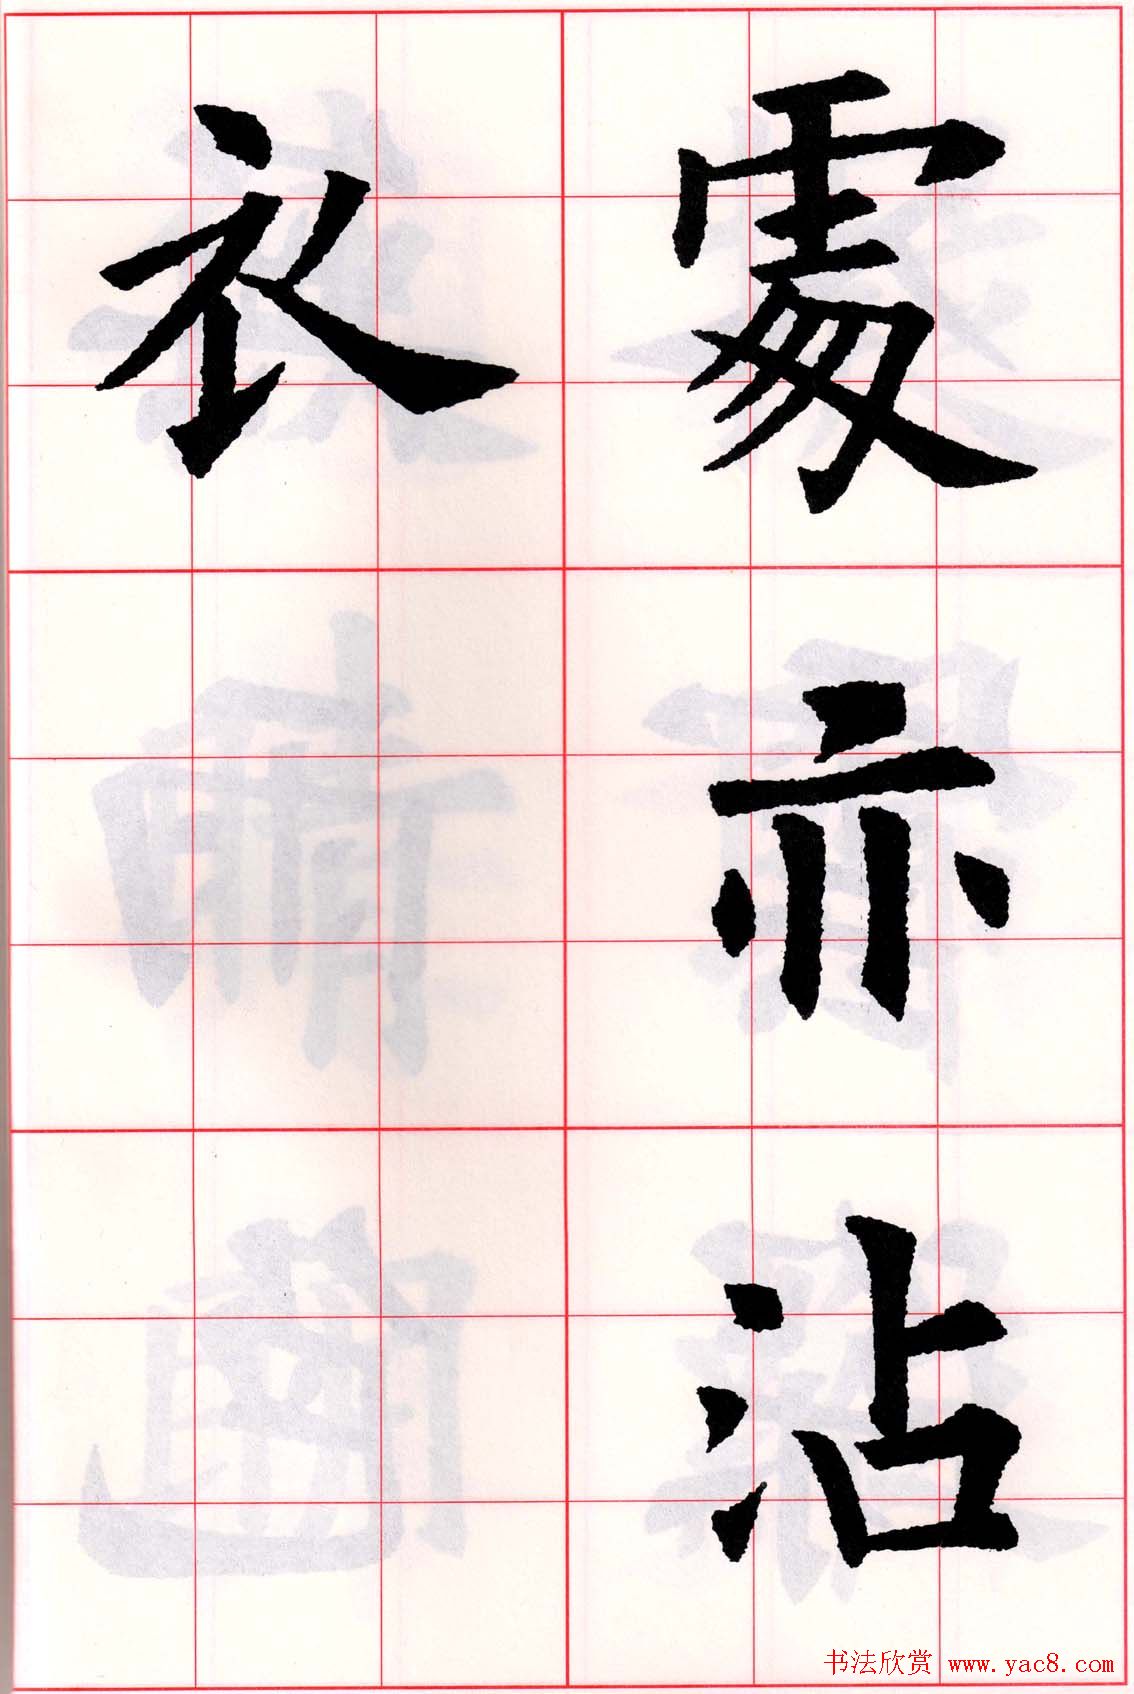 處亦沾
衣
书法欣赏 www.yac8.com